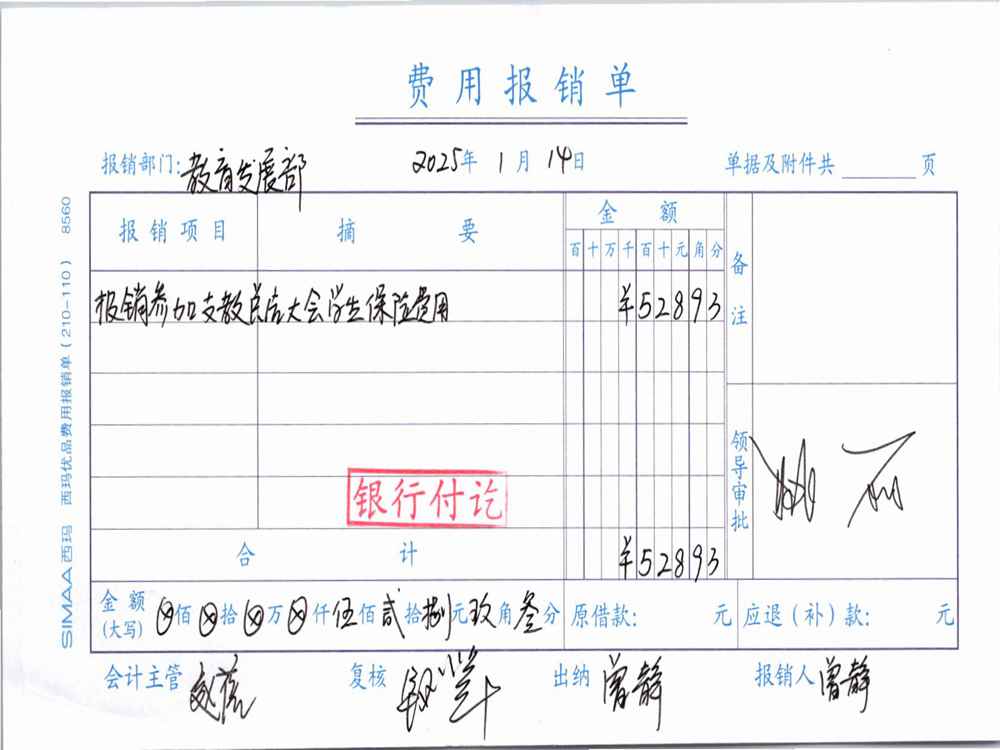 费用报销单
报销部门:教育发展部 2025年1月14日 单据及附件共 页
报销项目 摘要 金额 备注
百十万千百十元角分
报销参加支教总结大会学生保险费用 ¥52893
领导审批
银行付讫
合计 ¥52893
金额(大写) ⊗佰⊗拾⊗万⊗仟伍佰贰拾捌元玖角叁分 原借款: 元 应退(补)款: 元
会计主管 复核 出纳 曾静 报销人 曾静
SIMAA西玛 西玛优品费用报销单(210-110) 8560